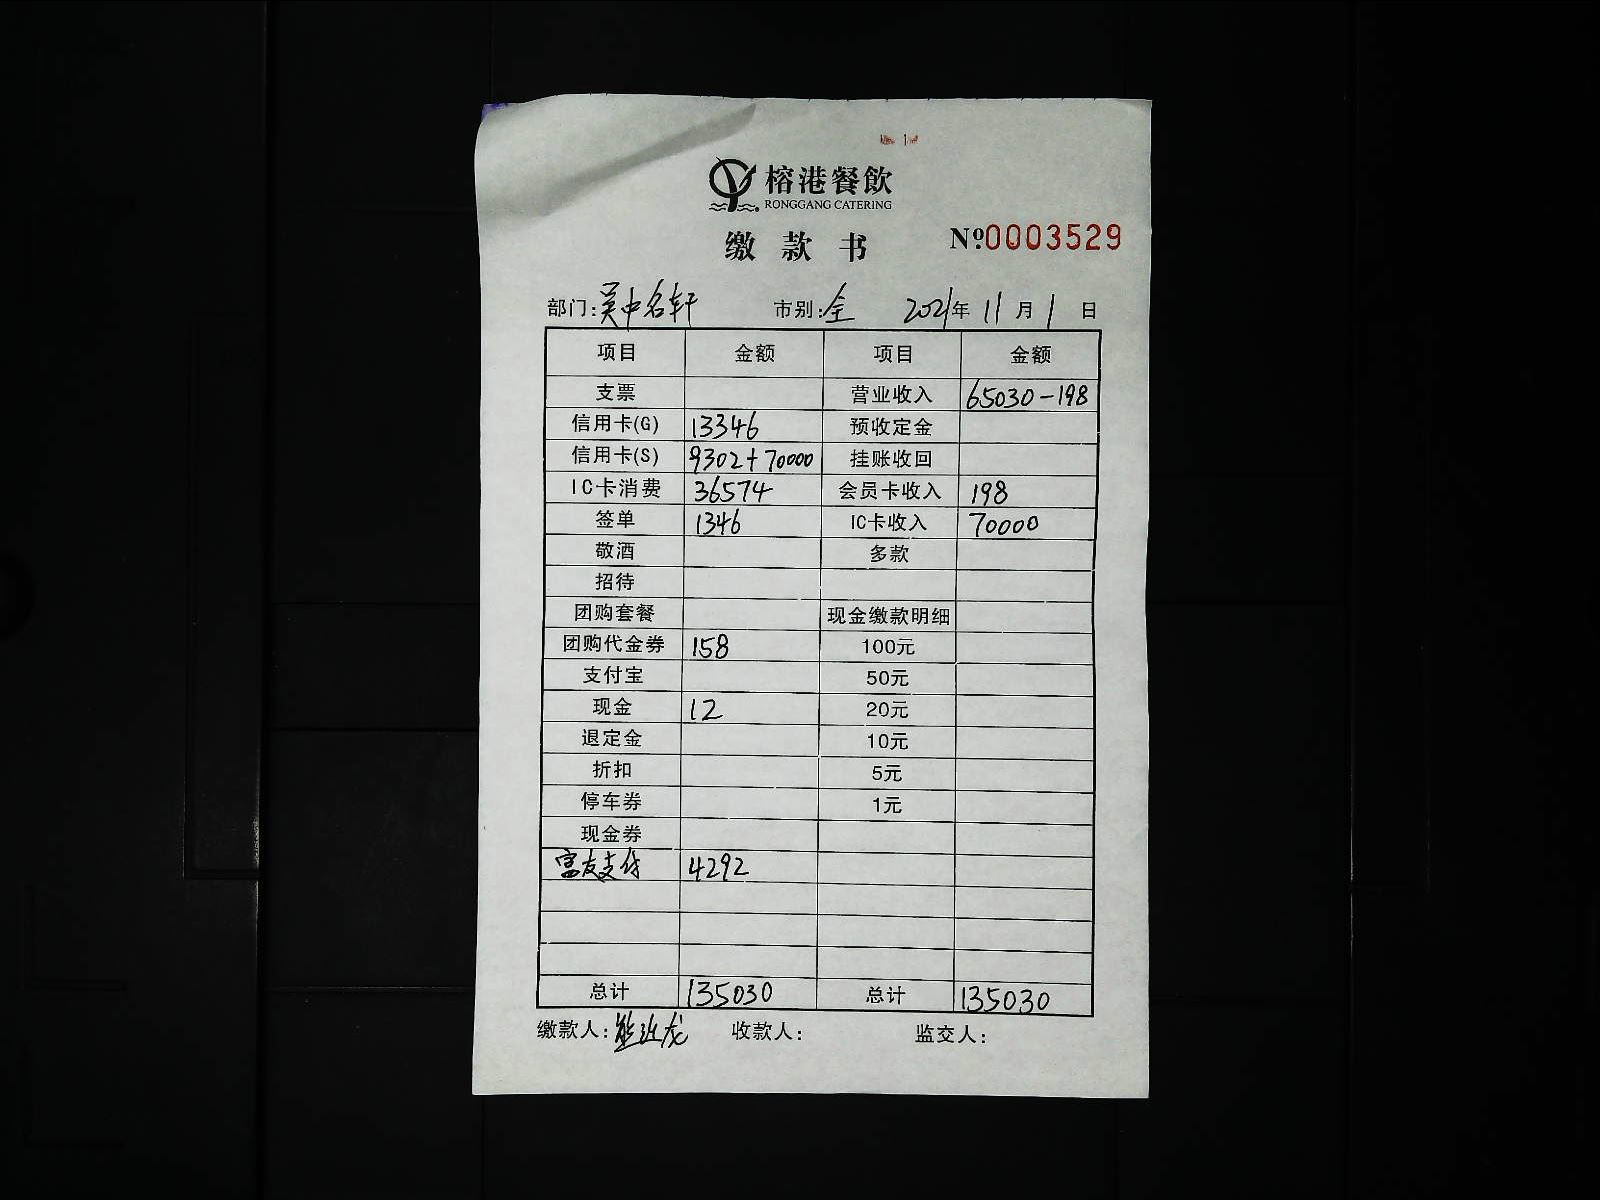 榕港餐飲
RONGGANG CATERING
缴款书 №0003529
部门:吴中名轩 市别:全 2021年11月1日
项目 金额 项目 金额
支票 营业收入 65030-198
信用卡(G) 13346 预收定金
信用卡(S) 9302+70000 挂账收回
IC卡消费 36574 会员卡收入 198
签单 1346 IC卡收入 70000
敬酒 多款
招待
团购套餐 现金缴款明细
团购代金券 158 100元
支付宝 50元
现金 12 20元
退定金 10元
折扣 5元
停车券 1元
现金券
富友支付 4292
总计 135030 总计 135030
缴款人: 收款人: 监交人: